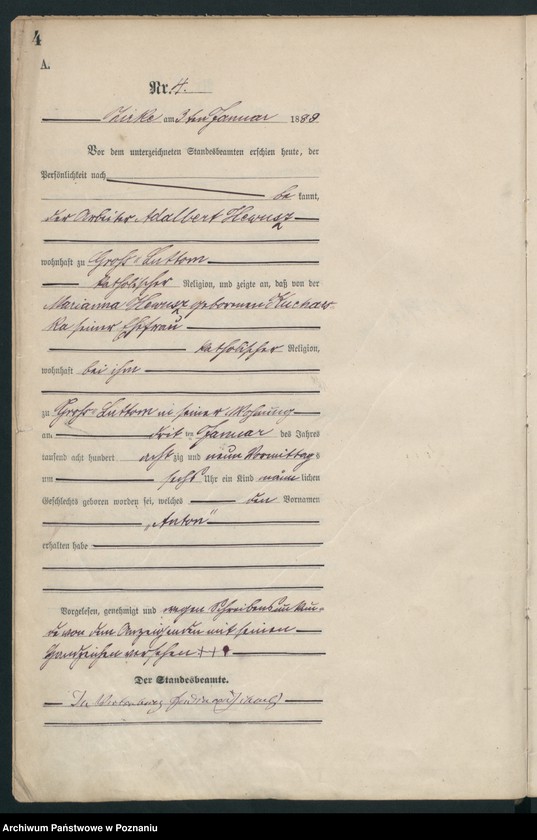 4
A.
Nr. 4.
Zirke am 3ten Januar 1889
Vor dem unterzeichneten Standesbeamten erschien heute, der
Persönlichkeit nach
be kannt,
der Arbeiter Adalbert
wohnhaft zu Groß-Luttom
katholischer Religion, und zeigte an, daß von der
Marianna geborenen Kuchars-
ka seiner Ehefrau
katholischer Religion,
wohnhaft bei ihm
zu Groß-Luttom in seiner Wohnung
am dritten Januar des Jahres
tausend acht hundert acht zig und neun Vormittags
um sechs Uhr ein Kind männ lichen
Geschlechts geboren worden sei, welches den Vornamen
„Anton“
erhalten habe
Vorgelesen, genehmigt und wegen Schreibensunkun-
de von dem Anzeigenden mit seinen
Handzeichen versehen +++
Der Standesbeamte.
Archiwum Państwowe w Poznaniu